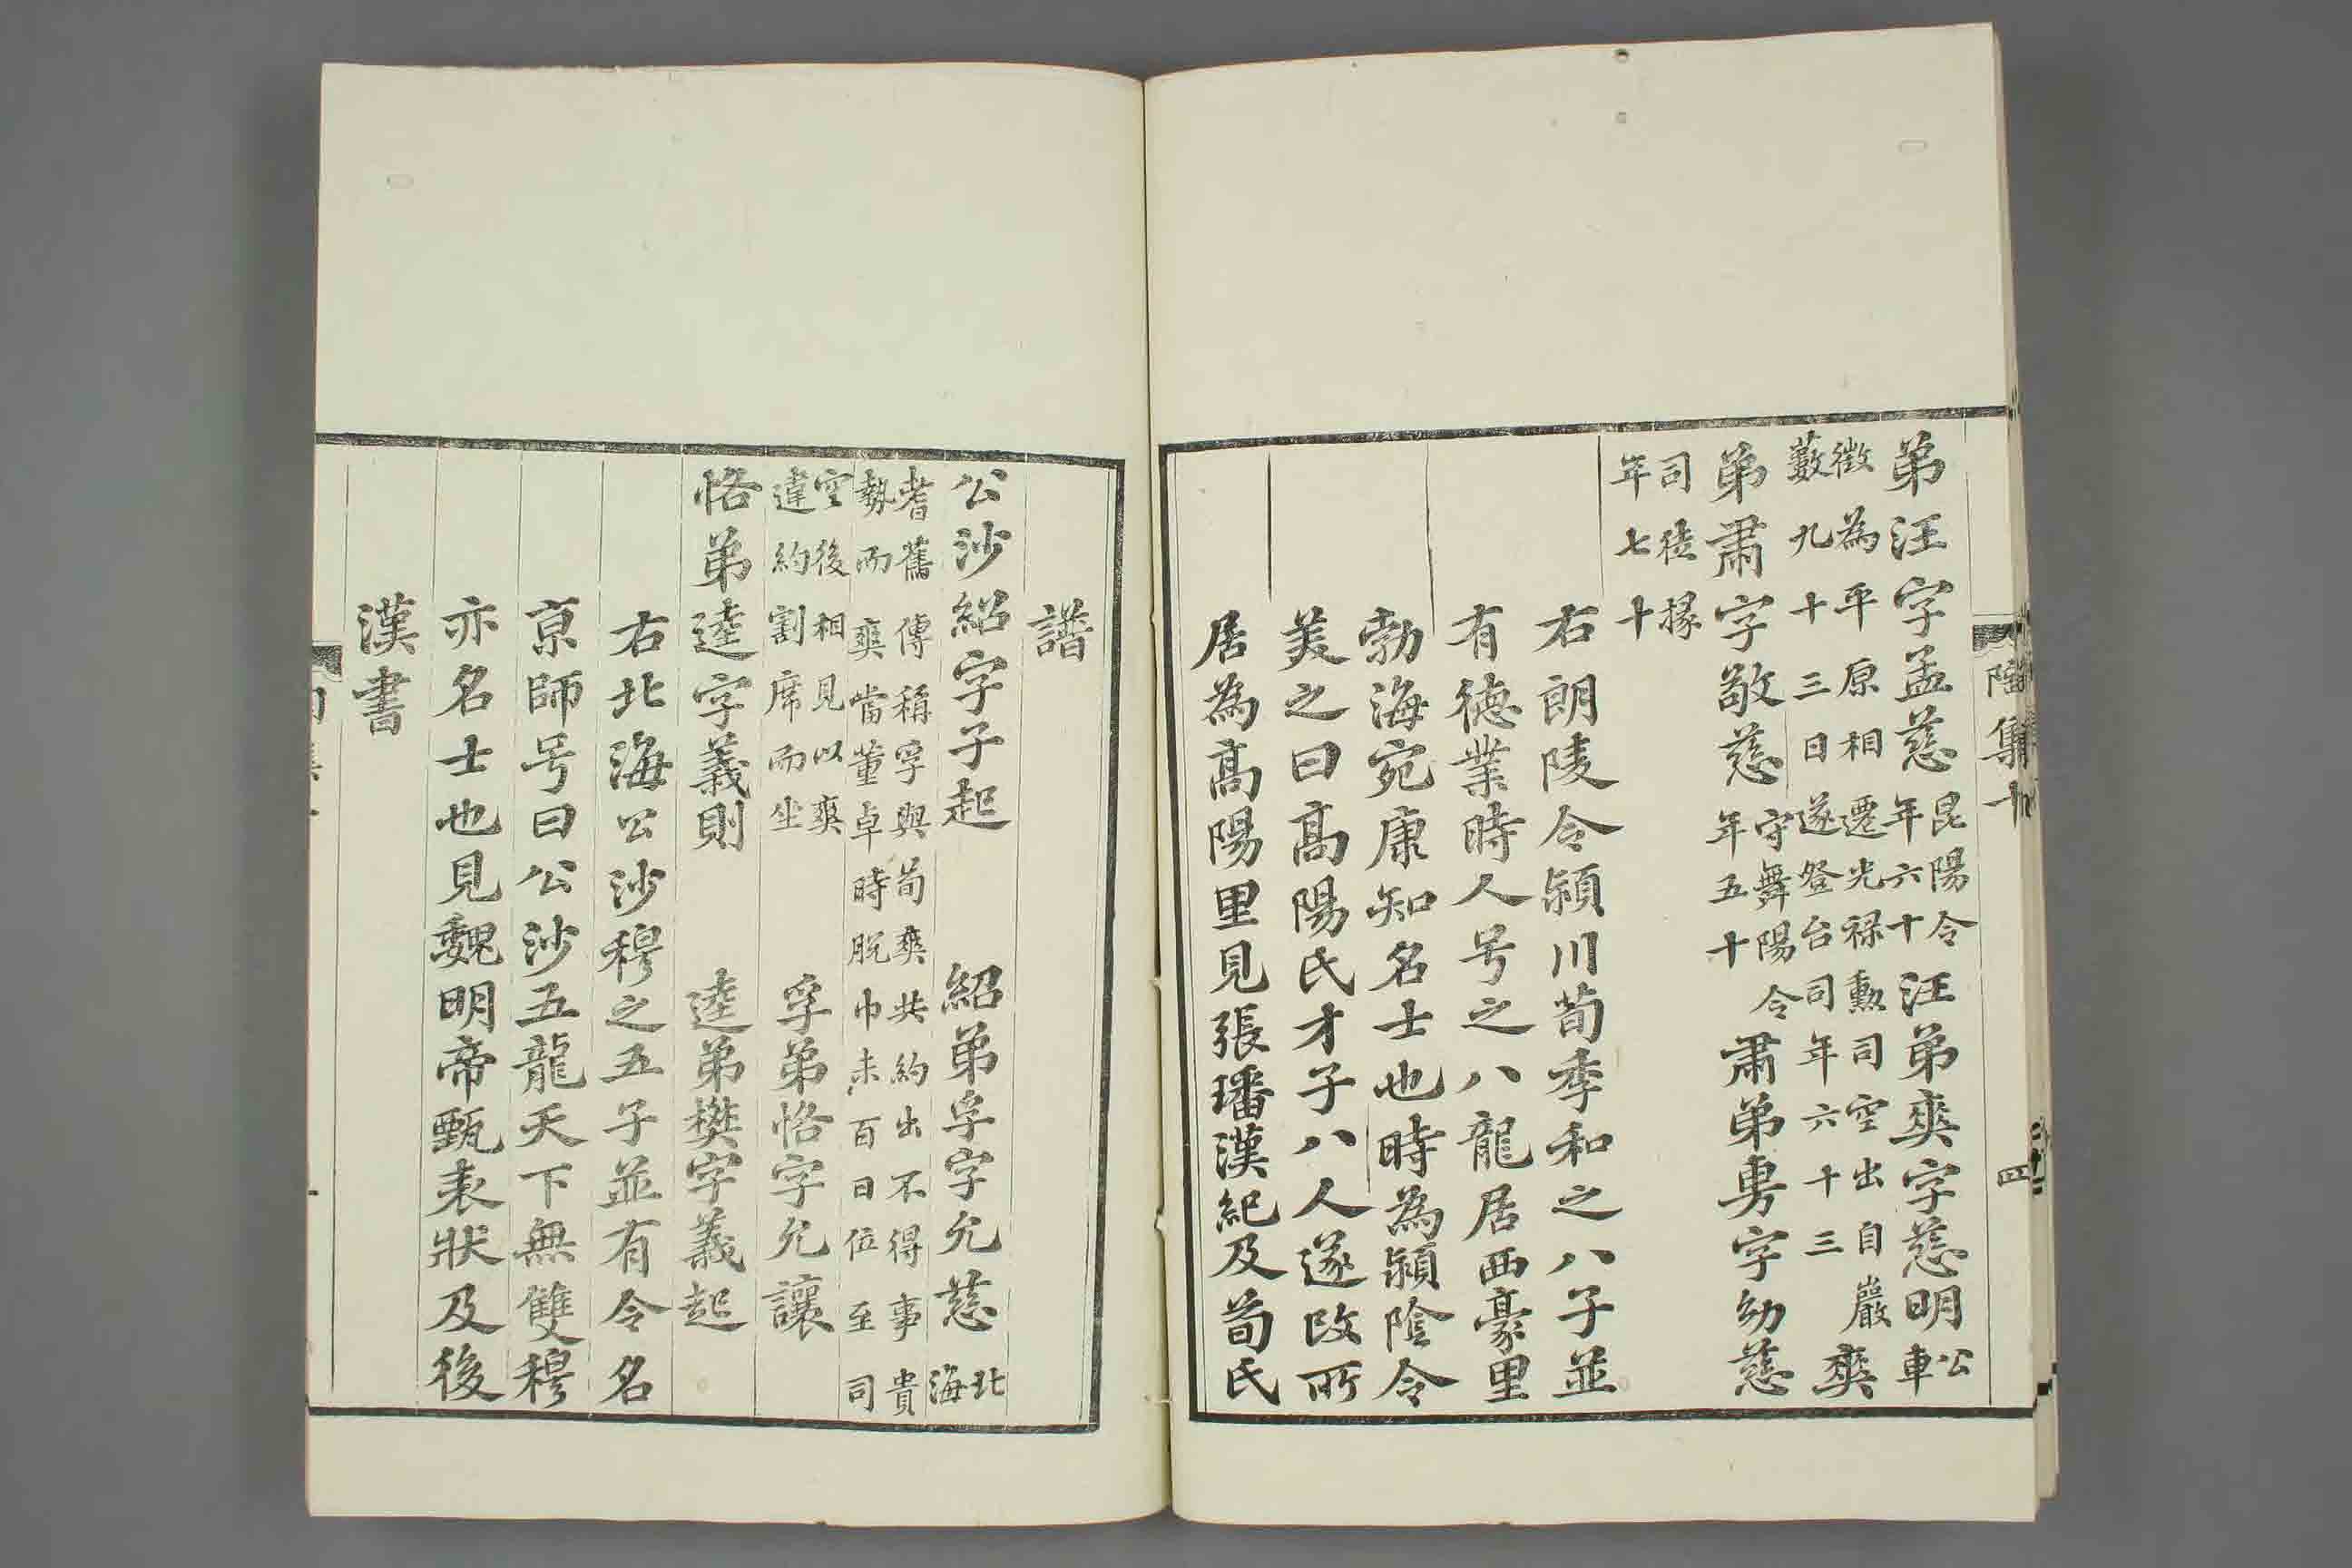 弟汪字孟慈昆陽令年六十汪弟爽字慈明公車
徵為平原相遷光禄勲司空出自巖藪九十三日遂登台司年六十三爽
弟肅字敬慈守舞陽令年五十肅弟旉字幼慈
司徒掾年七十
右朗陵令頴川荀季和之八子並
有徳業時人号之八龍居西豪里
勃海宛康知名士也時為頴陰令
美之曰髙陽氏才子八人遂改所
居為髙陽里見張璠漢紀及荀氏
譜
公沙紹字子起 紹弟孚字允慈北海
耆舊傳稱孚與荀爽共約出不得事貴勢而爽當董卓時脱巾未百日位至司
空後相見以爽違約割席而坐 孚弟恪字允讓
恪弟逵字義則 逵弟樊字義起
右北海公沙穆之五子並有令名
京師号曰公沙五龍天下無雙穆
亦名士也見魏明帝甄表狀及後
漢書
陶集十
四